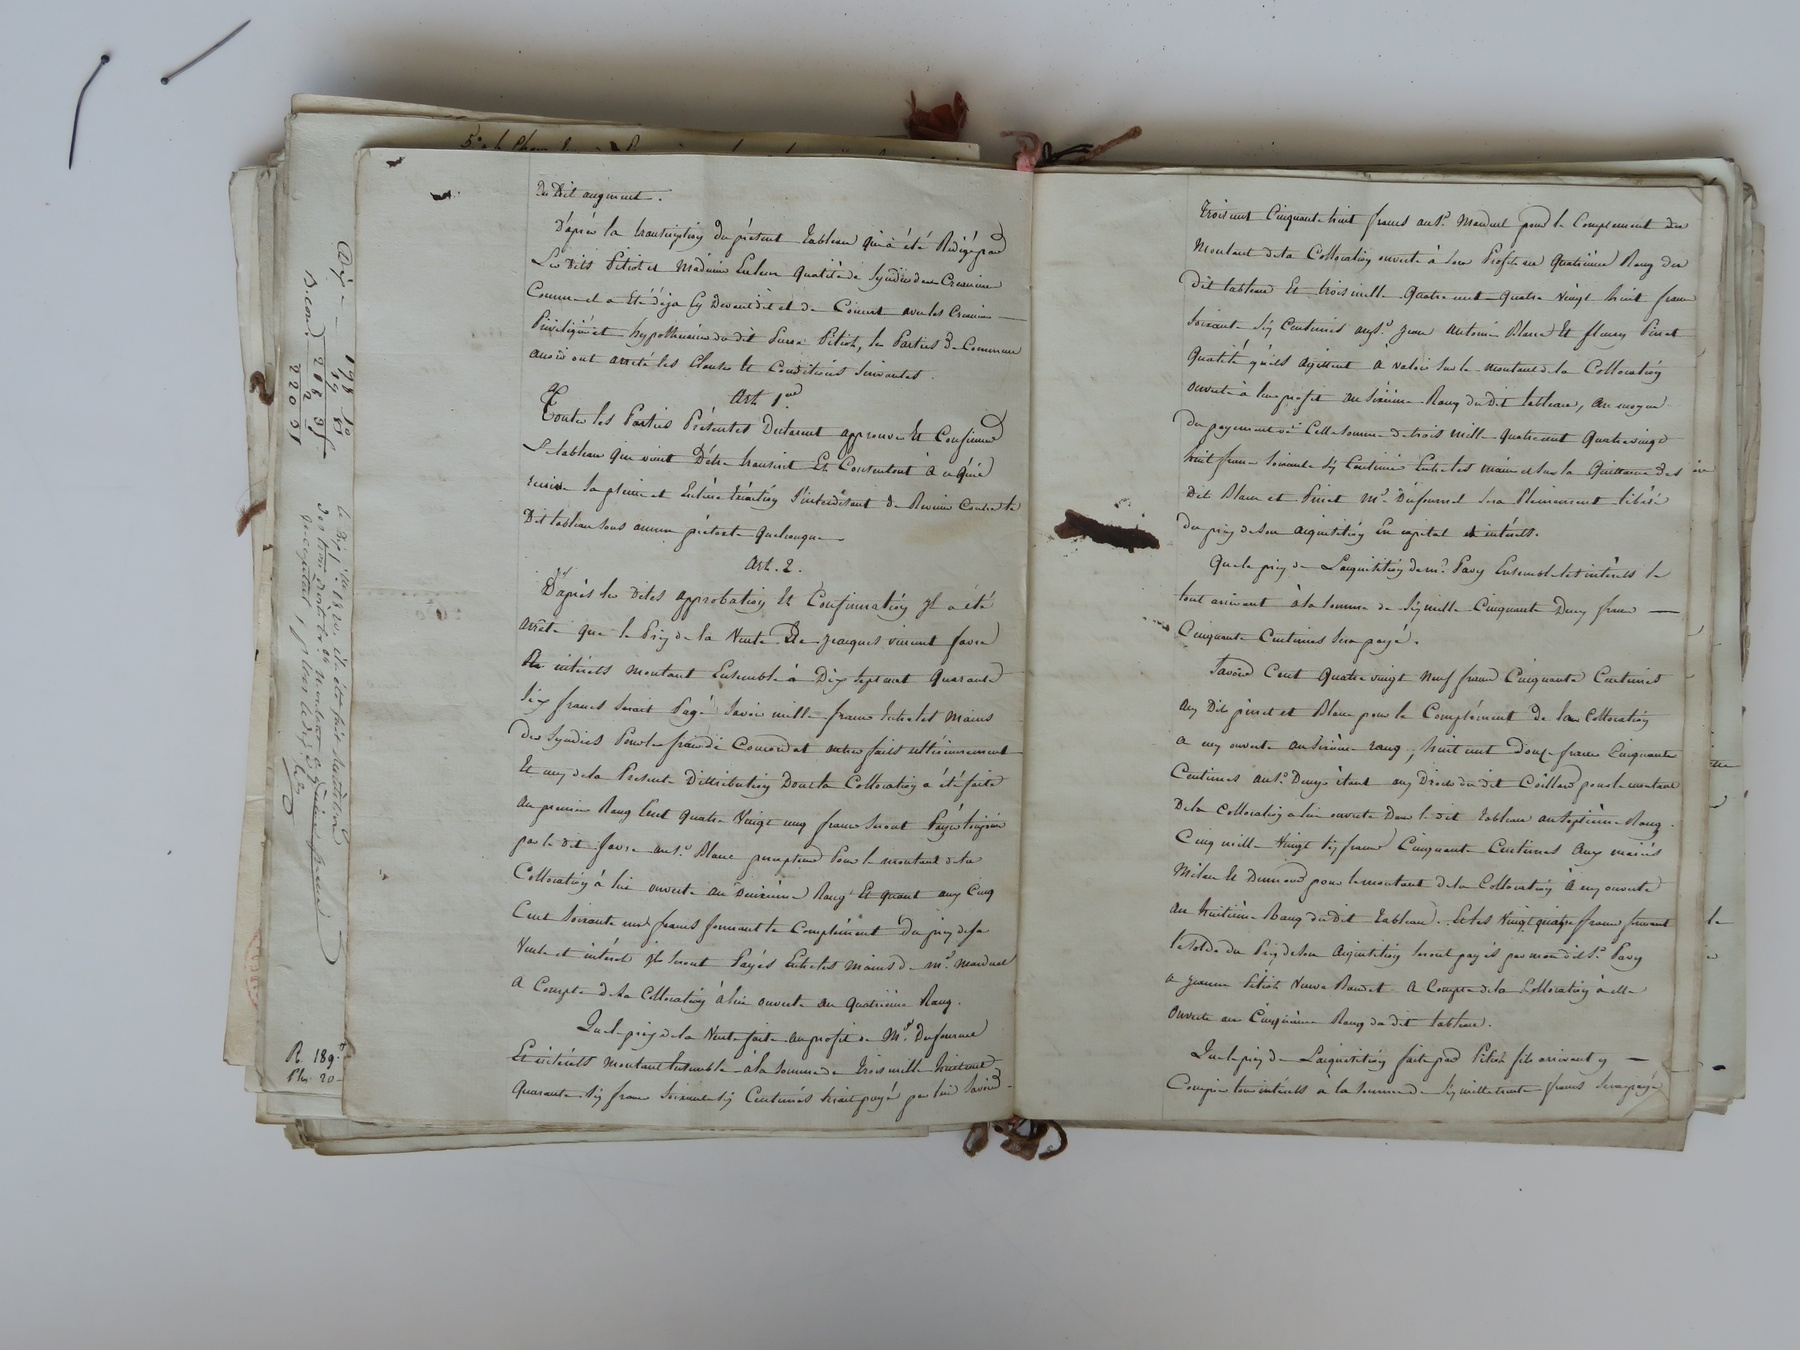 Du Dit augment.
D'après la transcription du présent Tableau qui a été Rédigé par
Les Dits Pitiot et Madinier En leur qualité de Syndics des Créanciers
Comme il a Été déja cy Devant dit et de Concert avec les Créanciers
Privilégiés et hypothécaires du dit Pierre Pitiot, les Parties De Commun
accord ont arrêté les Clauses Et Conditions Suivantes.
Art. 1er
Toutes les Parties Présentes Déclarent approuver Et Confirmer
Le tableau qui vient D'être transcrit Et Consentent à ce qu'il
reçoive Sa pleine et Entière Exécution S'interdisant de Revenir Contre le
Dit tableau Sous aucun prétexte Quelconque.
Art. 2.
D'après les Dites approbation Et Confirmation il a été
arrêté que le Prix de la Vente De Jacques vincent favre
Et intérêts montant Ensemble à Dix Sept cent Quarante
Six francs Serait Payé Savoir mille francs Entre les Mains
Des Syndics Pour les frais de Concordat autres faits ultérieurement
Et ceux de la Présente Distribution Dont la Collocation a été faite
au premier Rang Cent Quatre Vingt cinq francs Seront Payés
par le dit favre au Sr. Blanc percepteur Pour le montant de la
Collocation à lui ouverte au Deuxième Rang Et quant aux Cinq
Cent Soixante un francs formant le Complément Du prix de sa
Vente et intérêt ils Seront Payés Entre les Mains de Mr. Marduel
A Compte de Sa Collocation à lui ouverte au quatrième Rang.
Que le prix de la Vente faite au profit de Mr. Dufournel
Et intérêts montant Ensemble à la Somme de Trois mille huit cent
Quarante Six francs Soixante Six Centimes Serait payé par lui Savoir
Trois cent Cinquante huit francs au Sr. Marduel pour le Complément du
Montant de la Collocation ouverte à Son Profit au Quatrième Rang du
Dit tableau Et trois mille Quatre cent Quatre Vingt huit francs
Soixante Six Centimes aux Srs. Jean Antoine Blanc Et fleury Pinet
Qualité qu'ils agissent à valoir Sur le montant de la Collocation
ouverte à leur profit au Sixième Rang du Dit tableau, au moyen
Du payement de Cette Somme de trois mille Quatre cent Quatre vingt
huit francs Soixante Six Centimes Entre les mains et Sur la Quittance des
Dit Blanc et Pinet Mr. Dufournel Sera Pleinement libéré
Du prix de Son acquisition En capital et intérêts.
Que le prix de L'acquisition de Mr. Pavy Ensemble les intérêts le
tout arrivant à la Somme de Six mille Cinquante Deux francs
Cinquante Centimes Sera payé.
Savoir Cent Quatre vingt Neuf francs Cinquante Centimes
aux Dits pinet et Blanc pour le Complément de la Collocation
à eux ouverte au Sixième rang, huit cent Douze francs Cinquante
Centimes au Sr. étant aux Droits du dit Coillard pour le montant
De la Collocation à lui ouverte Dans le dit tableau au Septième Rang.
Cinq mille Vingt Six francs Cinquante Centimes Aux mariés
Milan Et pour le montant de la Collocation à eux ouverte
au Huitième Rang du Dit Tableau. Et les Vingt quatre francs formant
le Solde du Prix de Son Acquisition Seront payés par mon dit Sr. Pavy
a Jeanne Pitiot Veuve Baudet A Compte de la Collocation à elle
Ouverte au Cinquième Rang du dit tableau.
Que le prix de L'acquisition faite par Pitiot fils arrivant y
Compris tous intérêts à la Somme de Six mille trente francs Sera payé
198 10
19 83
2.2
220 31
R. 189
Ph. 20